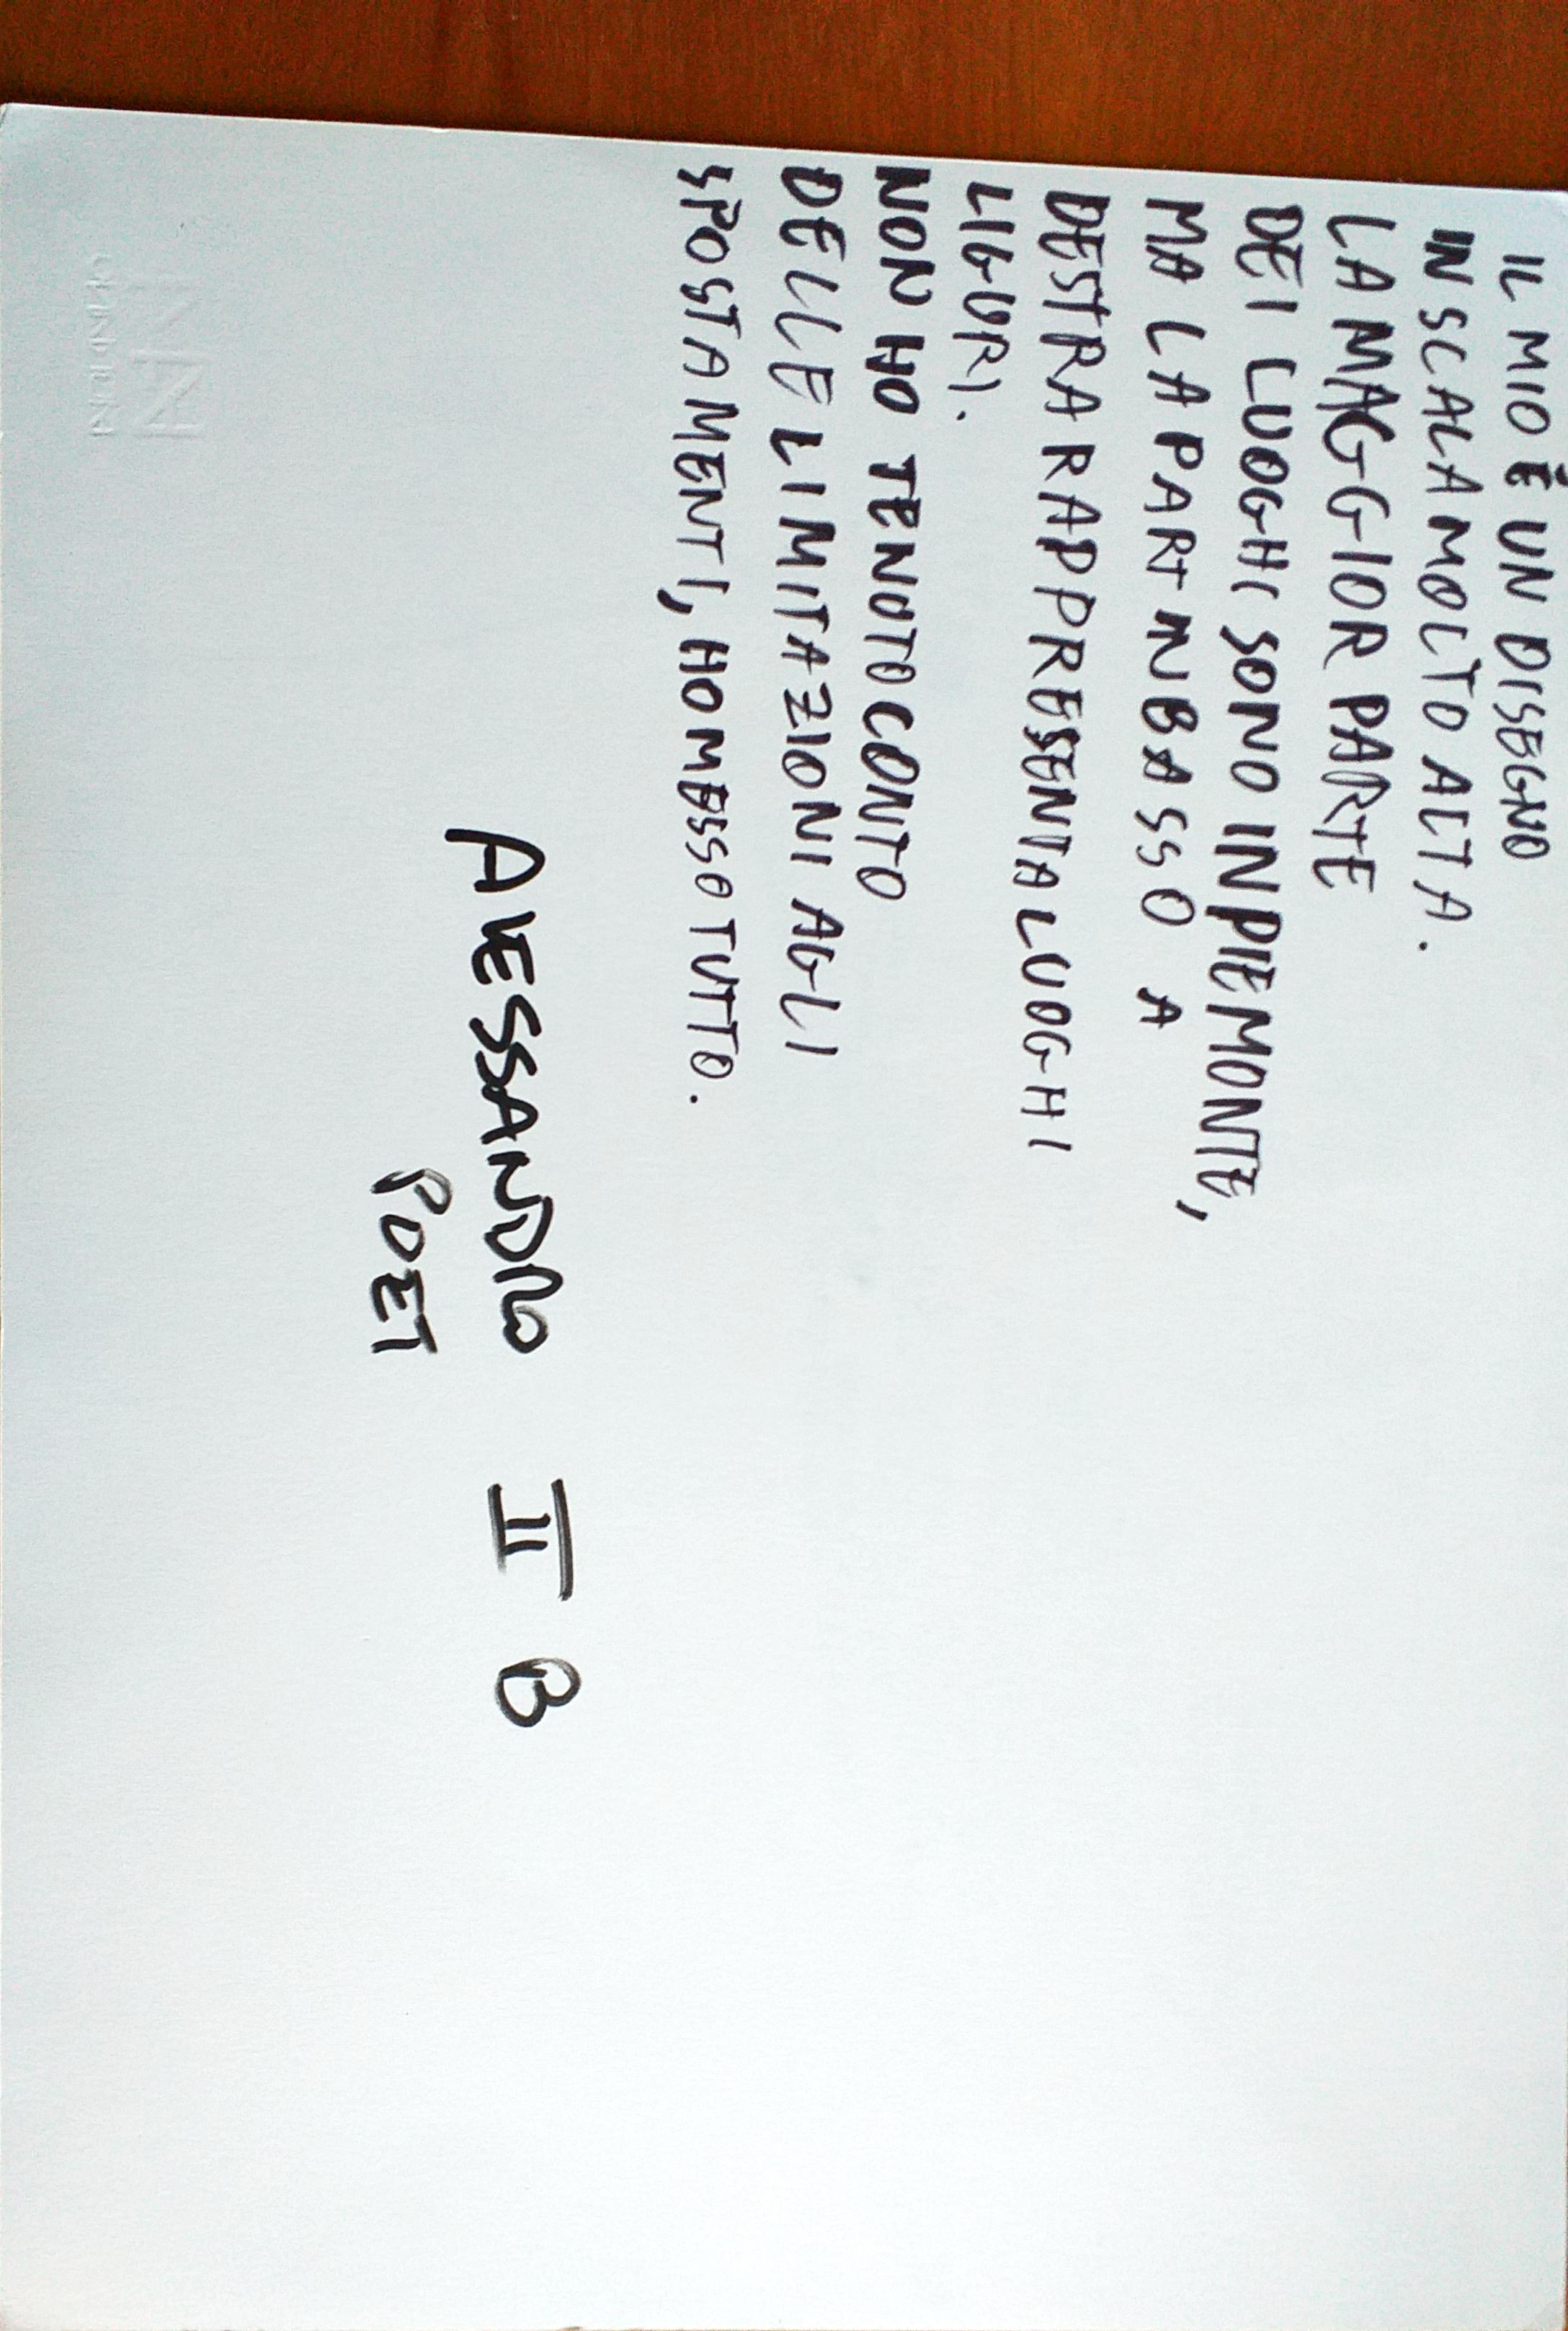 IL MIO È UN DISEGNO
IN SCALA MOLTO ALTA.
LA MAGGIOR PARTE
DEI LUOGHI SONO IN PIEMONTE,
MA LA PARTE IN BASSO A
DESTRA RAPPRESENTA LUOGHI
LIGURI.
NON HO TENUTO CONTO
DELLE LIMITAZIONI AGLI
SPOSTAMENTI, HO MESSO TUTTO.
ALESSANDRO II B
POET